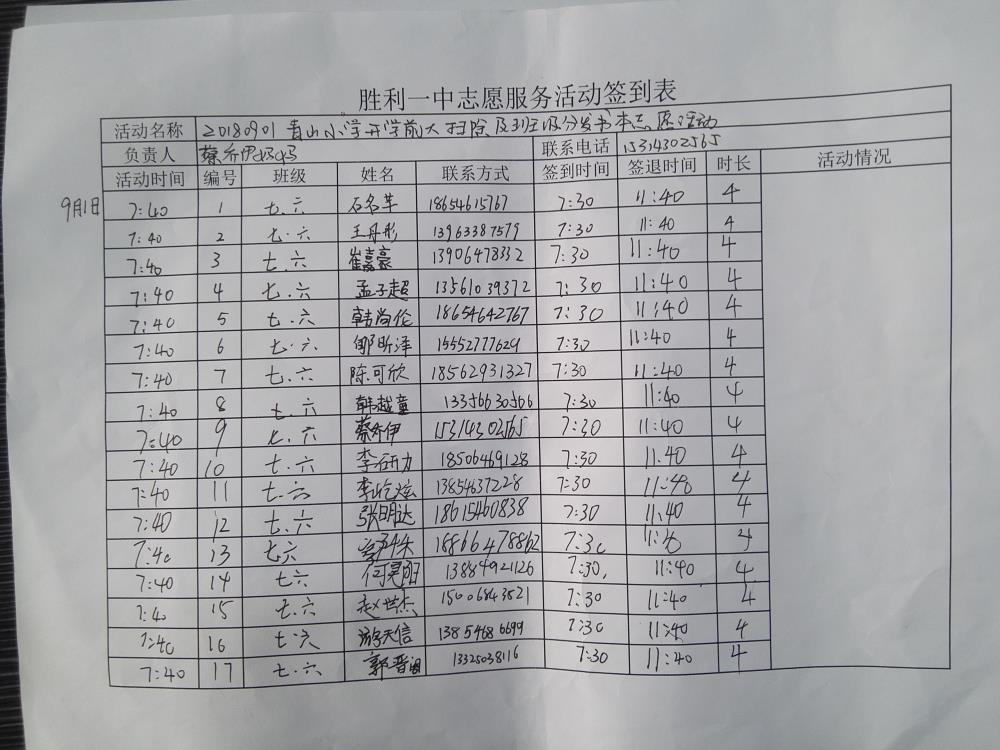 胜利一中志愿服务活动签到表
活动名称 20180901青山小学开学前大扫除及班级分发书本志愿活动
负责人 蔡乔伊妈妈 联系电话 15314302565
活动时间 编号 班级 姓名 联系方式 签到时间 签退时间 时长 活动情况
9月1日 7:40 1 七.六 石名芊 18654615767 7:30 11:40 4
7:40 2 七.六 王丹彤 13963387579 7:30 11:40 4
7:40 3 七.六 崔嘉豪 13906478332 7:30 11:40 4
7:40 4 七.六 孟子超 13561039372 7:30 11:40 4
7:40 5 七.六 韩尚伦 18654642767 7:30 11:40 4
7:40 6 七.六 郇昕泽 15552777629 7:30 11:40 4
7:40 7 七.六 陈可欣 18562931327 7:30 11:40 4
7:40 8 七.六 韩越童 13356630566 7:30 11:40 4
7:40 9 七.六 蔡乔伊 15314302565 7:30 11:40 4
7:40 10 七.六 李 18506469128 7:30 11:40 4
7:40 11 七.六 李屹炫 13854637228 7:30 11:40 4
7:40 12 七.六 张明达 18615460838 7:30 11:40 4
7:40 13 七六 18866478862 7:30 11:40 4
7:40 14 七六 何昊阳 13884921126 7:30. 11:40 4
7:40 15 七.六 赵世杰 15006843521 7:30 11:40 4
7:40 16 七.六 游天信 13854686699 7:30 11:40 4
7:40 17 七.六 郭晋 13325038116 7:30 11:40 4